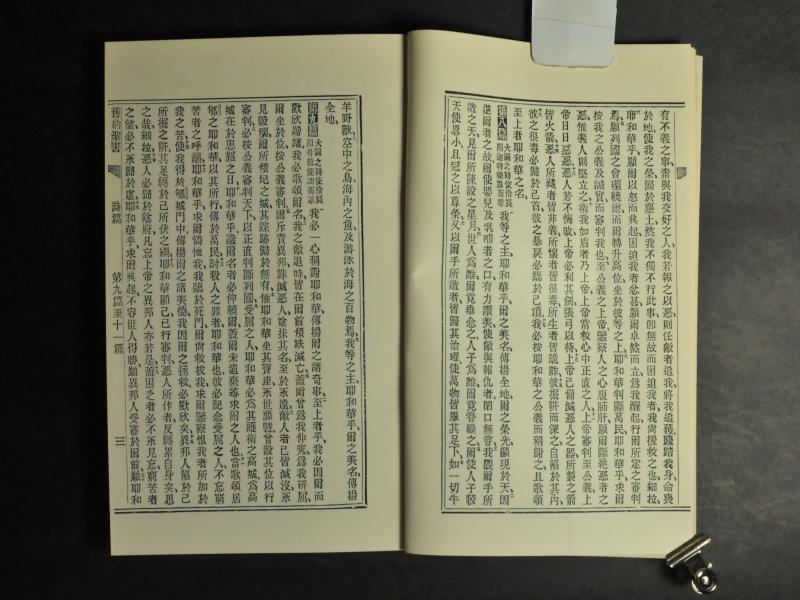 有不義之事、嘗與我交好之人、我若報之以惡、則任敵者追我、將我追獲、踐踏我身、命喪
於地、使我之榮歸於塵土、然我不獨不行此事、卽無故而困迫我者、我尚援救之也、細拉、
耶和華乎、願爾以怒而興起、因迫我者忿甚、願爾卓然而立、爲我醒起、行爾所定之審判
焉、願列國之會環繞爾、而爾轉升高位、坐於彼等之上、耶和華判斷萬民、耶和華乎、求爾
按我之公義及誠實而審判我也、至公義之上帝、鑒察人之心腹肺肝、願爾斷絕惡者之
惡、惟義人則堅立之、衛我如盾者乃上帝、上帝當救心中正直之人、上帝審判至公義、上
帝日日惡惡、惡人若不悔改、上帝必利其劍、張弓以待、上帝已備滅惡人之器、所製之箭
皆火箭、惡人所藏者皆非義、所懷者皆很毒、所生者皆詭詐、彼掘阱而深之、自陷於其內、
彼之很毒必歸於己首、彼之暴戾必臨於己頂、我必按耶和華之公義而稱謝之、且歌頌
至上者耶和華之名、
第八篇 大闢之詩使伶長用迦特樂器而歌 我等之主耶和華乎、爾之美名、傳揚全地、爾之榮光顯現於天、因
逆爾者之故、爾使嬰兒及乳哺者之口、有力讚美、使敵與報仇者閉口無言、我觀爾手所
造之天、見爾所陳設之星月、世人爲誰、爾竟垂念之、人子爲誰、爾竟眷顧之、爾使人子較
天使微小、且冠之以尊榮、又以爾手所造者、皆歸其治理、使萬物皆服其足下、如一切牛
羊野獸、空中之鳥、海內之魚、及游泳於海之百物焉、我等之主耶和華乎、爾之美名、傳揚
全地、
第九篇 大闢之詩使伶長用母拉便調而歌 我必一心稱謝耶和華、傳揚爾之諸奇事、至上者乎、我必因爾而
歡欣踴躍、我必歌頌爾名、我之敵退時、皆在爾前傾跌滅亡、蓋爾曾爲我伸冤、爲我辨屈、
爾坐於位、按公義審判、爾斥責異邦、誅滅惡人、塗抹其名、至於永遠、敵人者已皆滅沒、永
見毀壞、爾所傾圮之城、其踪跡歸於無有、惟耶和華坐其寶座、永世靡曁、曾設其位以行
審判、必按公義審判天下、以正直判斷列國、受屈之人、耶和華必爲其護衛之高城、爲高
城在於患難之日、耶和華乎、識爾名者必仰賴爾、蓋爾未遺棄尋求爾之人也、當歌頌居
郇之耶和華、以其所行、傳於萬民、討殺人之罪者、耶和華也、彼必記念受屈之人、不忘窮
苦者之呼籲、耶和華乎、求爾憐恤我、我臨於死門、爾尚救拔我、求爾鑒察恨我者所加於
我之苦、使我得於郇城門中、傳揚爾之諸美德、我因爾之拯救、必歡欣矣、異邦人陷於己
所掘之阱、其足纏於己所伏之網、耶和華顯己、已行審判、惡人所作者、反纏累自身矣、思
之哉、細拉、惡人必歸於陰府、凡忘上帝之異邦人亦若是、蓋困乏者必不永見忘、窮苦者
之望必不永歸於虛、耶和華乎、求爾興起、不容世人得勝、願異邦人受審於爾前、願耶和
舊約聖書　詩篇　第九篇至十一篇　三